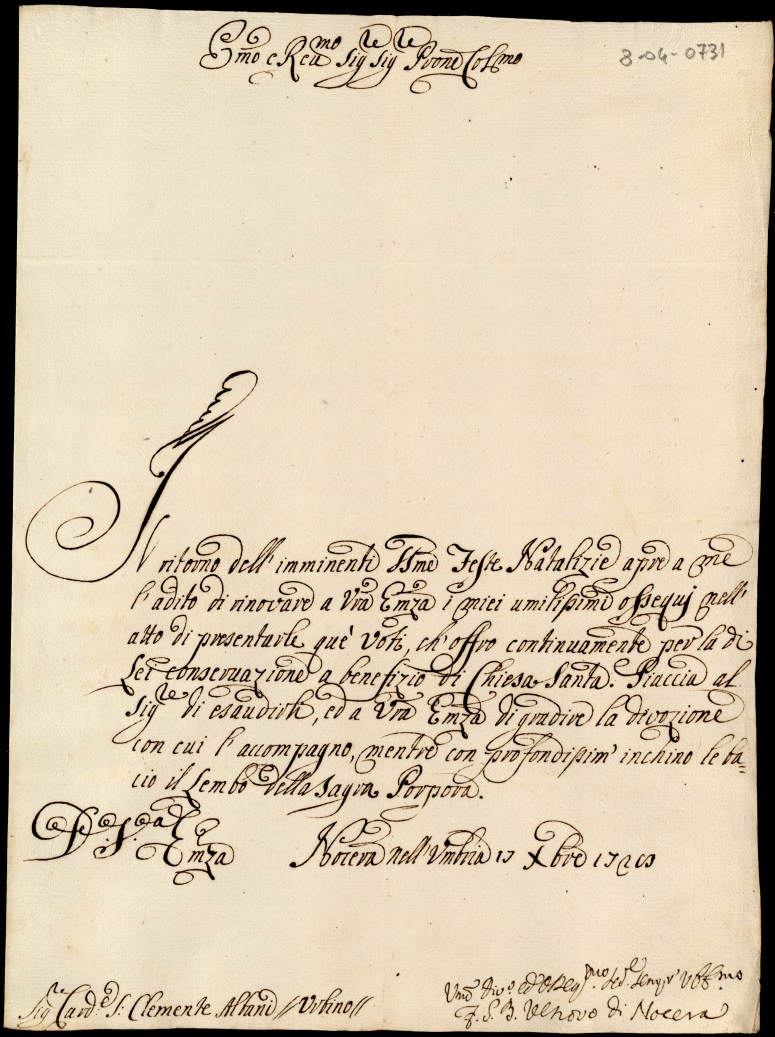 Emo e Rev mo Sig re Sig re Prone Col mo
3-04-0731
Il ritorno dell' imminenti SSme Feste Natalizie apre a me
l' adito di rinovare a Vra Emza i miei umilissimi ossequj nell'
atto di presentarle que' Voti, ch' offro continuamente per la di
Lei conservazione a benefizio di Chiesa Santa. Piaccia al
Sig re di esaudirli, ed a Vra Emza di gradire la divozione
con cui l' accompagno, mentre con profondissim' inchino le ba=
cio il Lembo della Sagra Porpora.
Di V. ra Emza
Nocera nell' Umbria 17 Xbre
Sig re Card. e S. Clemente Albani // Urbino //
Umo Divo ed Obblig mo Ser. e
Vescovo di Nocera